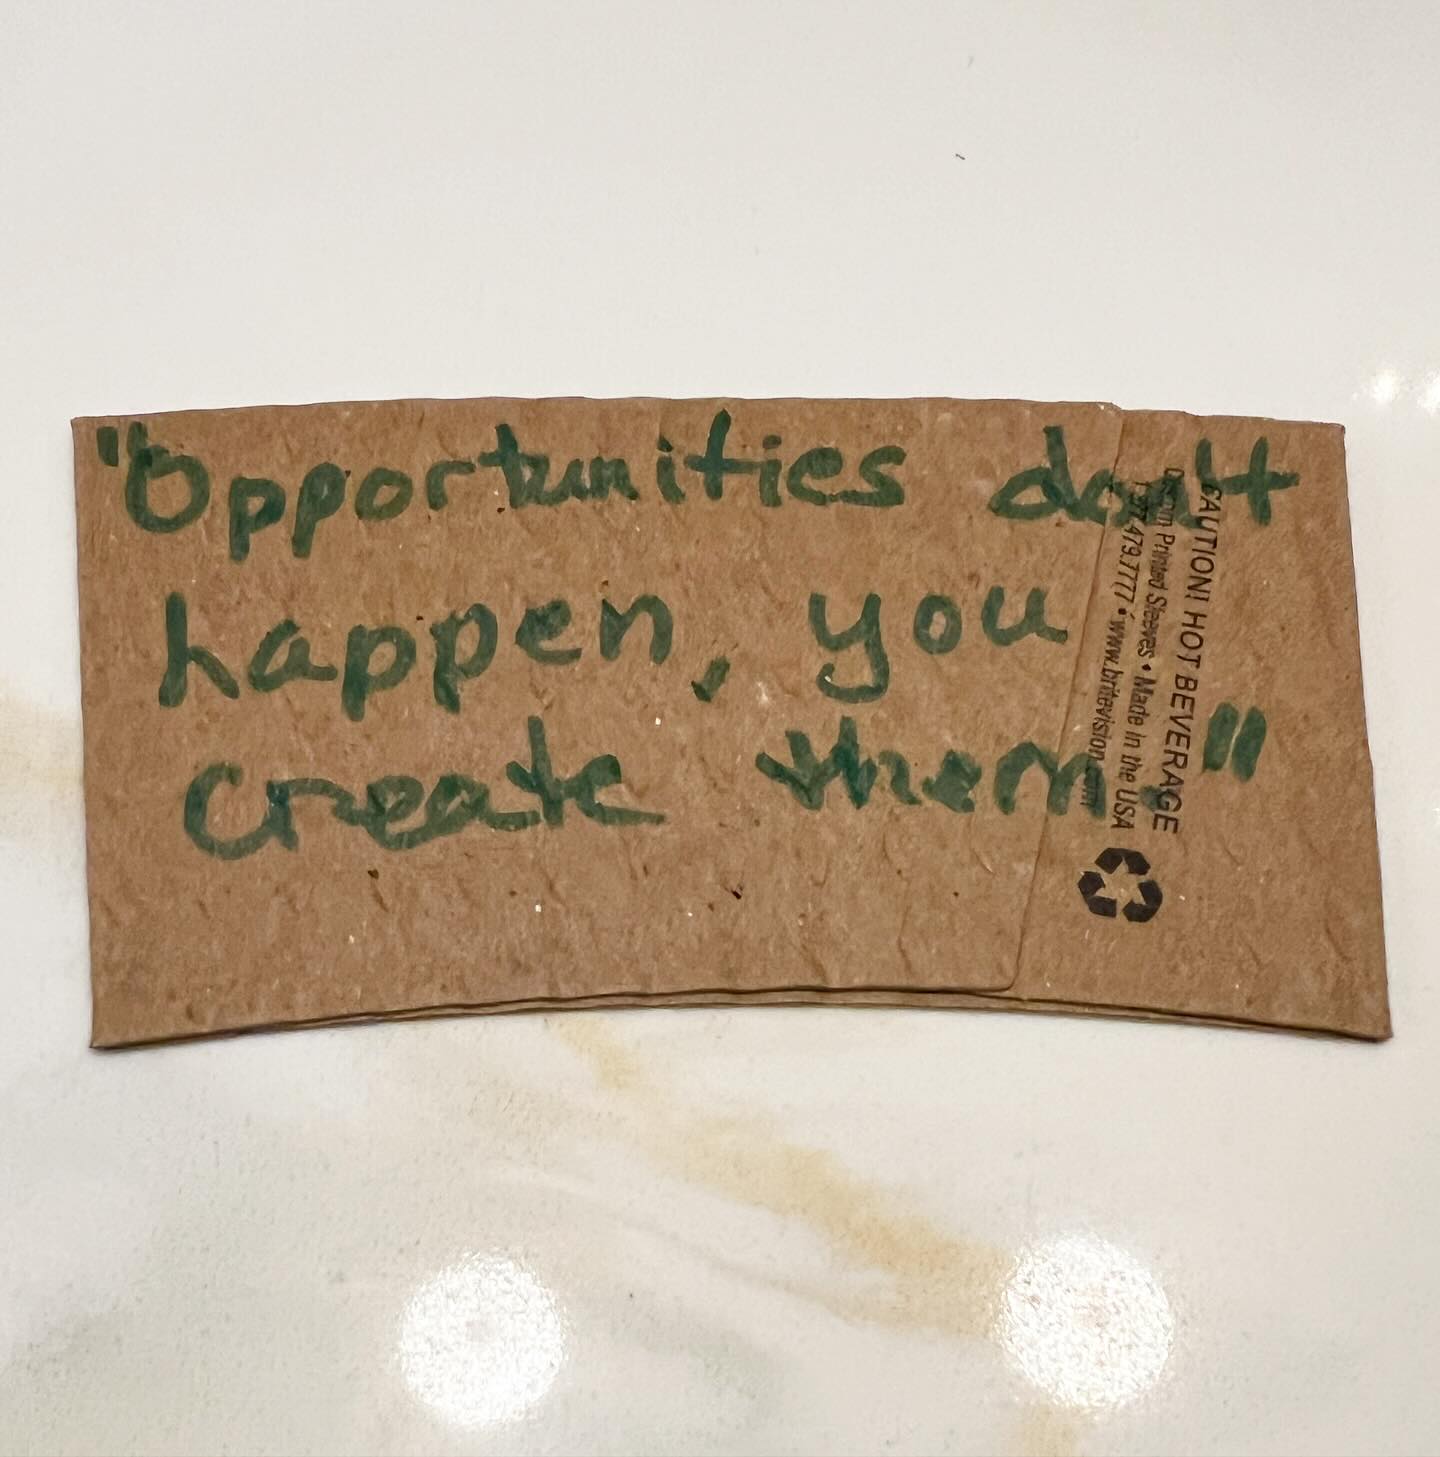 "Opportunities don't
happen, you
create them"
CAUTION! HOT BEVERAGE
Custom Printed Sleeves • Made in the USA
1.877.479.7777 • www.britevision.com